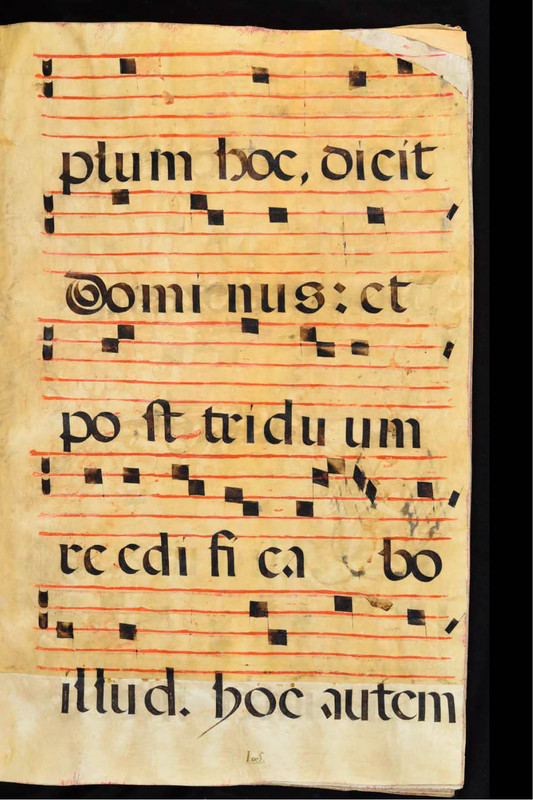 plum hoc, dicit
Domi nus: et
po st tridu um
re edi fi ca bo
illud. hoc autem